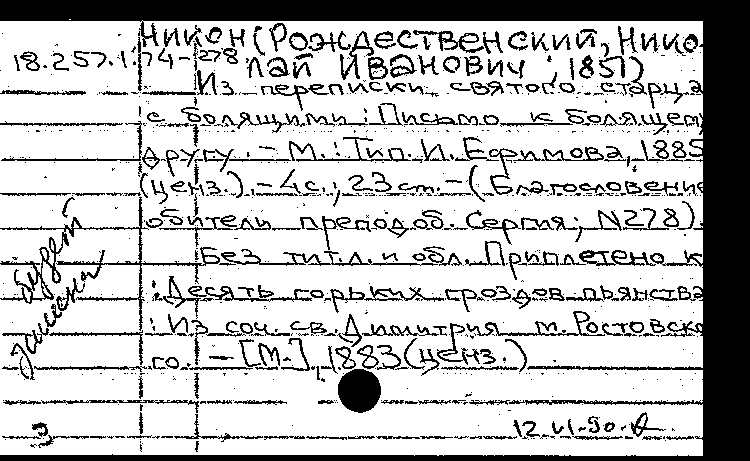 Никон (Рождественский, Нико-
18.257.1.74-278
лай Иванович ; 1851)
Из переписки святого старца
с болящими : Письмо к болящему
другу. - М. : Тип. И. Ефимова, 1885
(ценз.). - 4 с. ; 23 см. - (Благословение
обители преподоб. Сергия; N278).
Без тит. л. и обл. Приплетено к
: Десять горьких гроздев пьянства
: Из соч. св. Димитрия м. Ростовско
го. - [М.], 1883 (ценз.)
будет
3
12.VI-90.